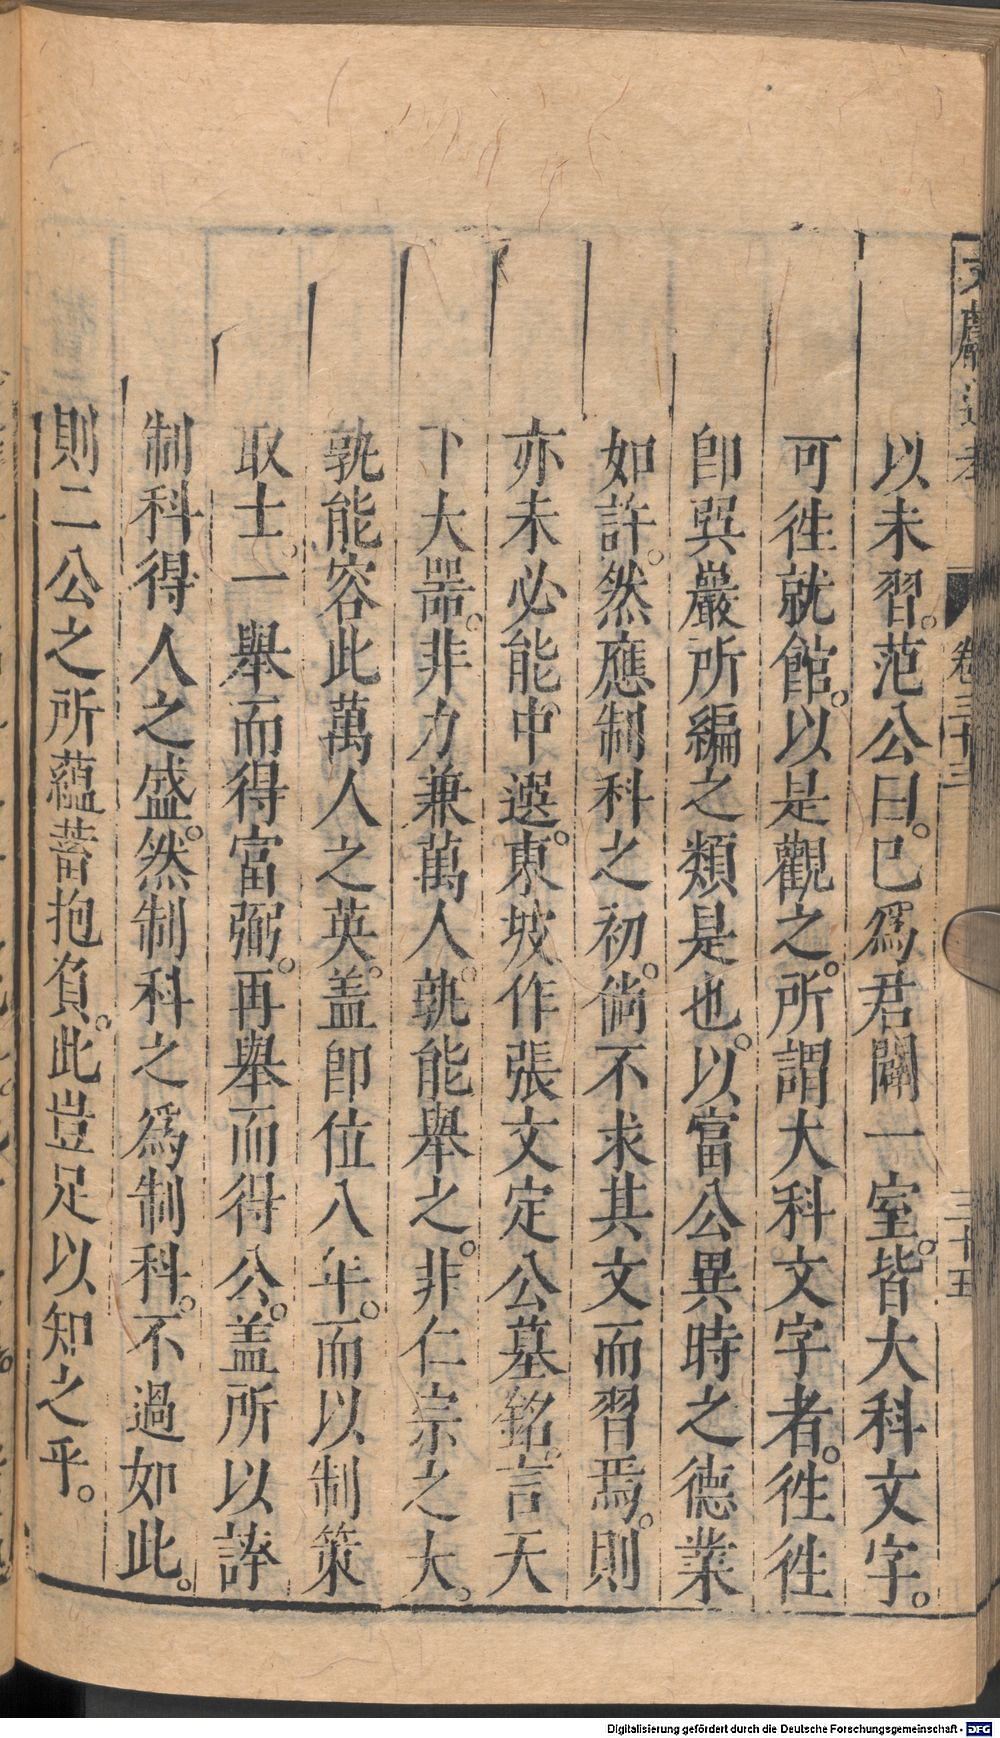 文獻通考 卷三十三 三十五
以未習。范公曰。已爲君闢一室。皆大科文字。
可徃就館。以是觀之。所謂大科文字者。徃徃
卽巽巖所編之類是也。以富公異時之德業
如許。然應制科之初。倘不求其文而習焉。則
亦未必能中選。東坡作張文定公墓銘。言天
下大噐。非力兼萬人。孰能舉之。非仁宗之大。
孰能容此萬人之英。盖卽位八年。而以制策
取士。一舉而得富弼。再舉而得公。盖所以誇
制科得人之盛。然制科之爲制科。不過如此。
則二公之所蘊蓄抱負。此豈足以知之乎。
Digitalisierung gefördert durch die Deutsche Forschungsgemeinschaft - DFG